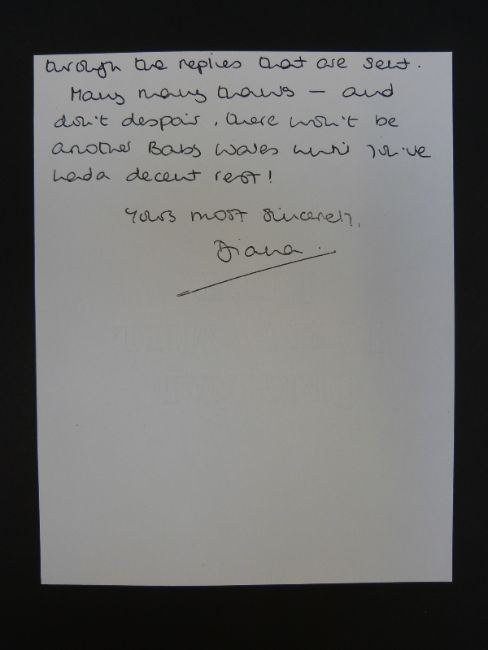 through the replies that are sent.
Many many thanks — and
don't despair, there won't be
another Baby Wales until you've
had a decent rest!
Yours most sincerely,
Diana.